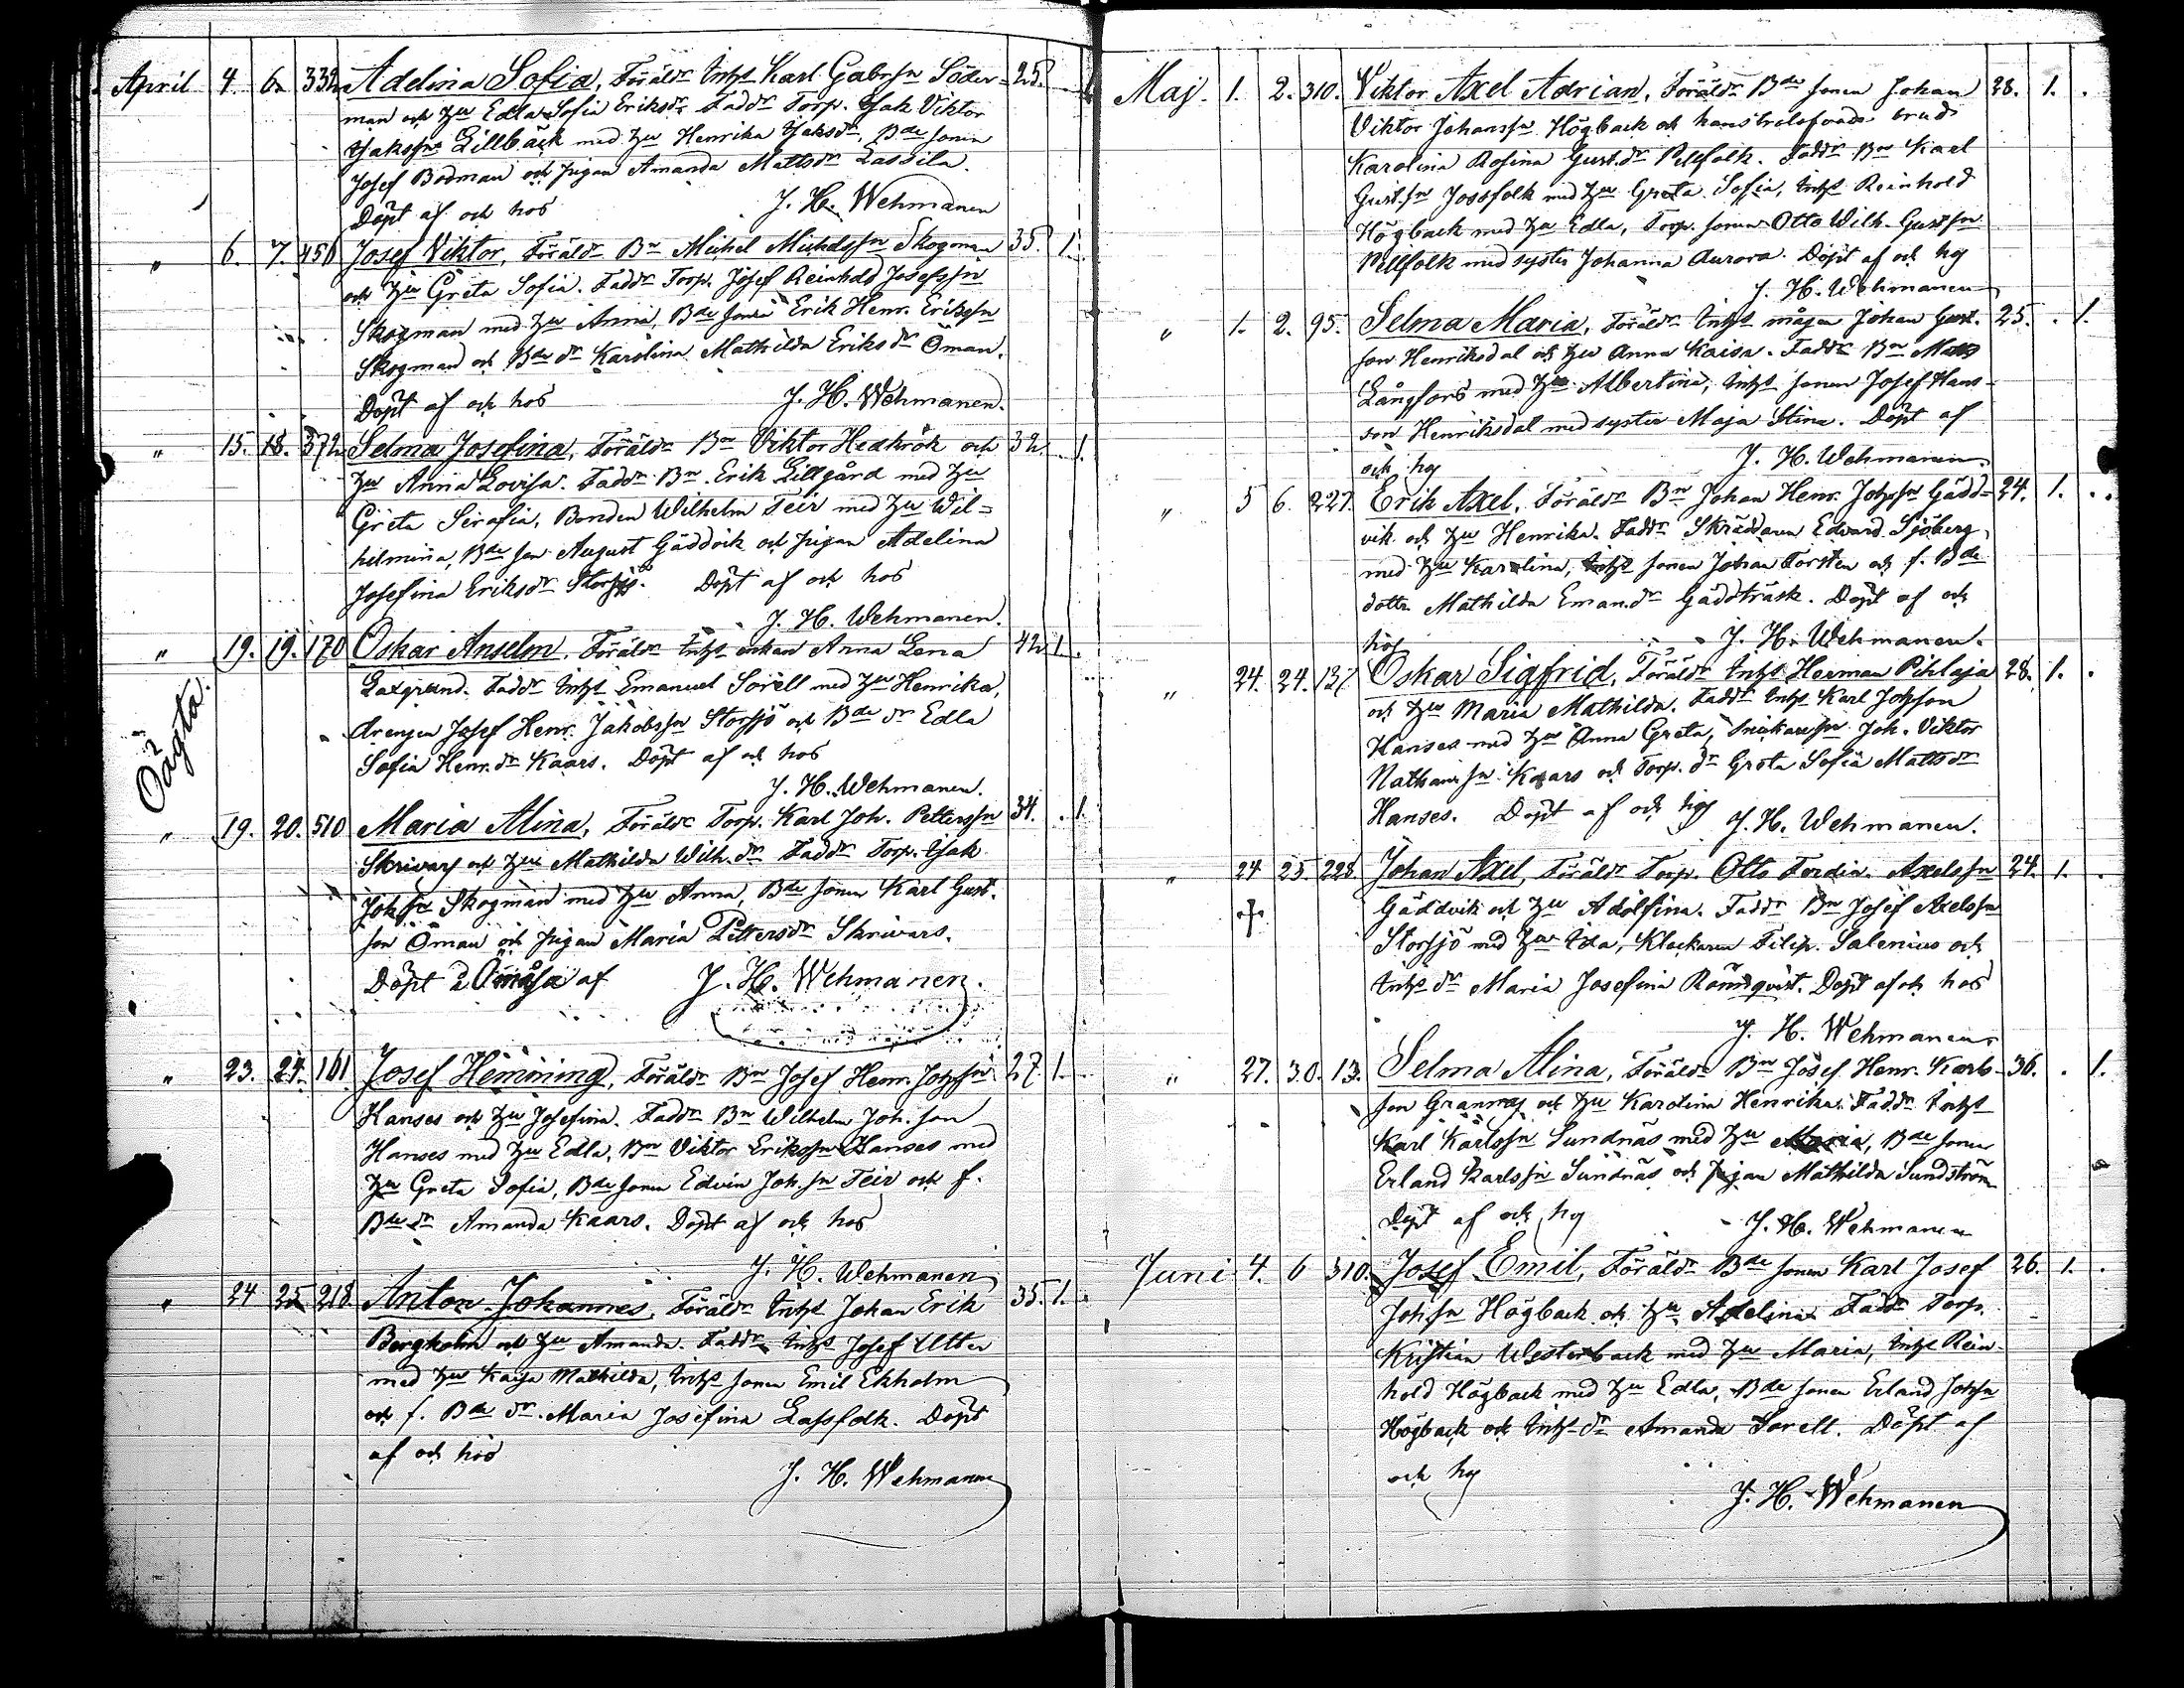 April 4. 6. 332 Adelina Sofia, Föräldr Inhs Karl Gabr.sn Söder- 25. 1
man och Hu Edla Sofia Eriksdr. Faddr Torp. Isak Viktor
Isakssn Lillbäck med Hu Henrika Isaksdr, Bde sonen
Josef Bodman och pigan Amanda Mattsdr Lassila.
Döpt af och hos J. H. Wehmanen
" 6. 7. 456 Josef Viktor, Föräldr Bn Mickel Mickelssn Skogman 35. 1.
och Hu Greta Sofia. Faddr Torp. Josef Reinhold Josefssn
Skogman med Hu Anna, Bde sonen Erik Henr. Erikssn
Skogman och Bde dr Karolina Mathilda Eriksdr Öman.
Döpt af och hos J. H. Wehmanen.
" 15. 18. 372 Selma Josefina, Föräldr Bn Viktor Hedkrok och 32. 1.
Hu Anna Lovisa. Faddr Bn Erik Lillgård med Hu
Greta Serafia, Bonden Wilhelm Teir med Hu Wil=
helmina, Bde son August Gäddvik och pigan Adelina
Josefina Eriksdr Storsjö. Döpt af och hos
J. H. Wehmanen.
" 19. 19. 170 Oskar Anselm, Föräldr Inhs enkan Anna Lena 42 1.
Laxgrund. Faddr Inhs Emanuel Sorell med Hu Henrika,
drengen Josef Henr. Jakobssn Storsjö och Bde dr Edla
Sofia Henr.dr Kaars. Döpt af och hos
J. H. Wehmanen.
Oägta.
" 19. 20. 510 Maria Alina, Föräldr Torp. Karl Joh. Petterssn 34. 1.
Skrivars och Hu Mathilda Wilh.dr Faddr Torp. Isak
Johssn Skogman med Hu Anna, Bde sonen Karl Gust.
son Öman och pigan Maria Pettersdr Skrivars.
Döpt af J. H. Wehmanen.
" 23. 24. 161 Josef Hemming, Föräldr Bn Josef Henr. Johssn 27. 1.
Hanses och Hu Josefina. Faddr Bn Wilhelm Joh. son
Hanses med Hu Edla, Bn Viktor Erikssn Hanses med
Hu Greta Sofia, Bde sonen Edvin Joh.sn Teir och f.
Bde dr Amanda Kaars. Döpt af och hos
J. H. Wehmanen
" 24 25 218 Anton Johannes, Föräldr Inhs Johan Erik 35. 1.
Bergholm och Hu Amanda. Faddr Inhs Josef Utter
med Hu Kajsa Mathilda, Inhs sonen Emil Ekholm
och f. Bde dr. Maria Josefina Lassfolk. Döpt
af och hos J. H. Wehmanen
Maj. 1. 2. 310. Viktor Axel Adrian, Föräldr Bde sonen Johan 28. 1.
Viktor Johanssn Högback och hans trolofvade brud
Karolina Rosina Gust.dr Pellfolk. Faddr Bn Karl
Gust.sn Jossfolk med Hu Greta Sofia, Inhs Reinhold
Högback med Hu Edla, Torp. sonen Otto Wilh. Gustssn
Pellfolk med syster Johanna Aurora. Döpt af och hos
J. H. Wehmanen
" 1. 2. 95. Selma Maria, Föräldr Inhs mågen Johan Gust. 25. 1.
son Henriksdal och Hu Anna Kaisa. Faddr Bn Matts
Långfors med Hu Albertina, Inhs sonen Josef Hans-
son Henriksdal med syster Maja Stina. Döpt af
och hos J. H. Wehmanen.
" 5 6. 227. Erik Axel, Föräldr Bn Johan Henr. Johssn Gädd- 24. 1.
vik och Hu Henrika. Faddr Skräddaren Edvard Sjöberg
med Hu Karolina, Inhs sonen Johan Torsten och f. Bde
dottr. Mathilda Eman.dr Gäddträsk. Döpt af och
hos J. H. Wehmanen.
" 24. 24. 137 Oskar Sigfrid, Föräldr Inhs Herman Pihlaja 28. 1.
och Hu Maria Mathilda. Faddr Inhs Karl Johsson
Hanses med Hu Anna Greta, Joh. Viktor
Kaars och Torp. dr Greta Sofia Mattsdr
Hanses. Döpt af och hos J. H. Wehmanen.
" 24 25. 228. Johan Axel, Föräldr Torp. Otto Ferdin. Axelssn 24. 1.
† Gäddvik och Hu Adolfina. Faddr Bn Josef Axelssn
Storsjö med Hu Ida, Klockaren Filip. Salenius och
Inhs dr Maria Josefina Rönnqvist. Döpt af och hos
J. H. Wehmanen
" 27. 30. 13. Selma Alina, Föräldr Bn Josef Henr. Karls- 36. 1.
son och Hu Karolina Henrika. Faddr Inhs
Karl Karlssn Sundnäs med Hu Maria, Bde sonen
Erland Karlssn Sundnäs och pigan Mathilda Sundström
Döpt af och hos J. H. Wehmanen
Juni 4. 6 310. Josef Emil, Föräldr Bde sonen Karl Josef 26. 1.
Johssn Högback och Hu Adelina Faddr Torp.
Kristian Westerback med Hu Maria, Inhs Rein-
hold Högback med Hu Edla, Bde sonen Erland Johssn
Högback och Inhs dr Amanda Sorell. Döpt af
och hos J. H. Wehmanen